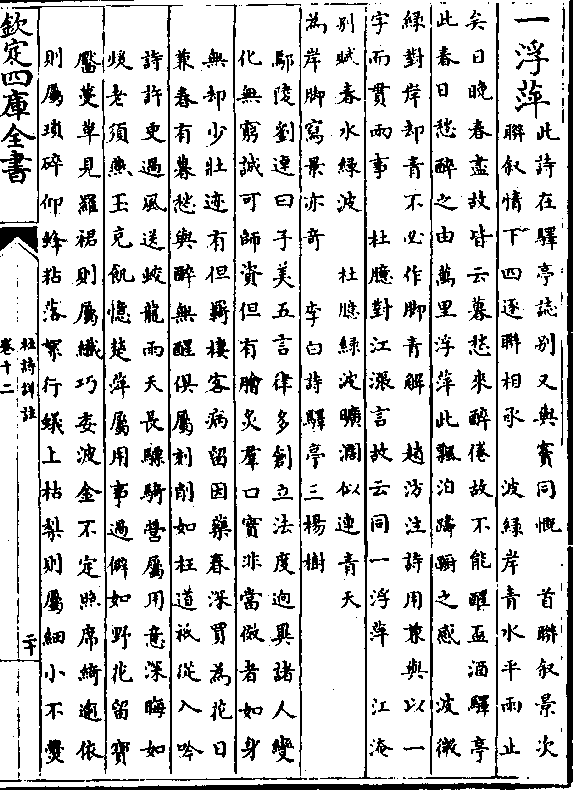 一浮萍
此詩在驛亭誌別又與賓同慨　首聯叙景次
聯叙情下四逐聯相承　波綠岸青水平雨止
矣日晚春盡故皆云暮愁來醉倦故不能醒盃酒驛亭
此春日愁醉之由萬里浮萍此飄泊躊躕之感　波微
綠對岸却青不必作脚青解　趙汸注詩用兼與以一
字而貫兩事　杜臆對江漲言故云同一浮萍　江淹
別賦春水綠波　杜臆綠波曠濶似連青天
為岸脚寫景亦奇　李白詩驛亭三楊樹
鄢陵劉逴曰子美五言律多創立法度迥異諸人變
化無窮誠可師資但有膾炙羣口實非當倣者如身
無却少壯迹有但羈棲客病留因藥春深買為花日
兼春有暮愁與醉無醒俱屬刻削如枉道祇從入吟
詩許更過風送蛟龍雨天長驃騎營屬用意深晦如
煖老須燕玉充飢憶楚萍屬用事過僻如野花留寶
靨蔓草見羅裙則屬纖巧委波金不定照席綺逾依
則屬瑣碎仰蜂粘落絮行蟻上枯梨則屬細小不爨
欽定四庫全書
杜詩詳註
卷十二
二十